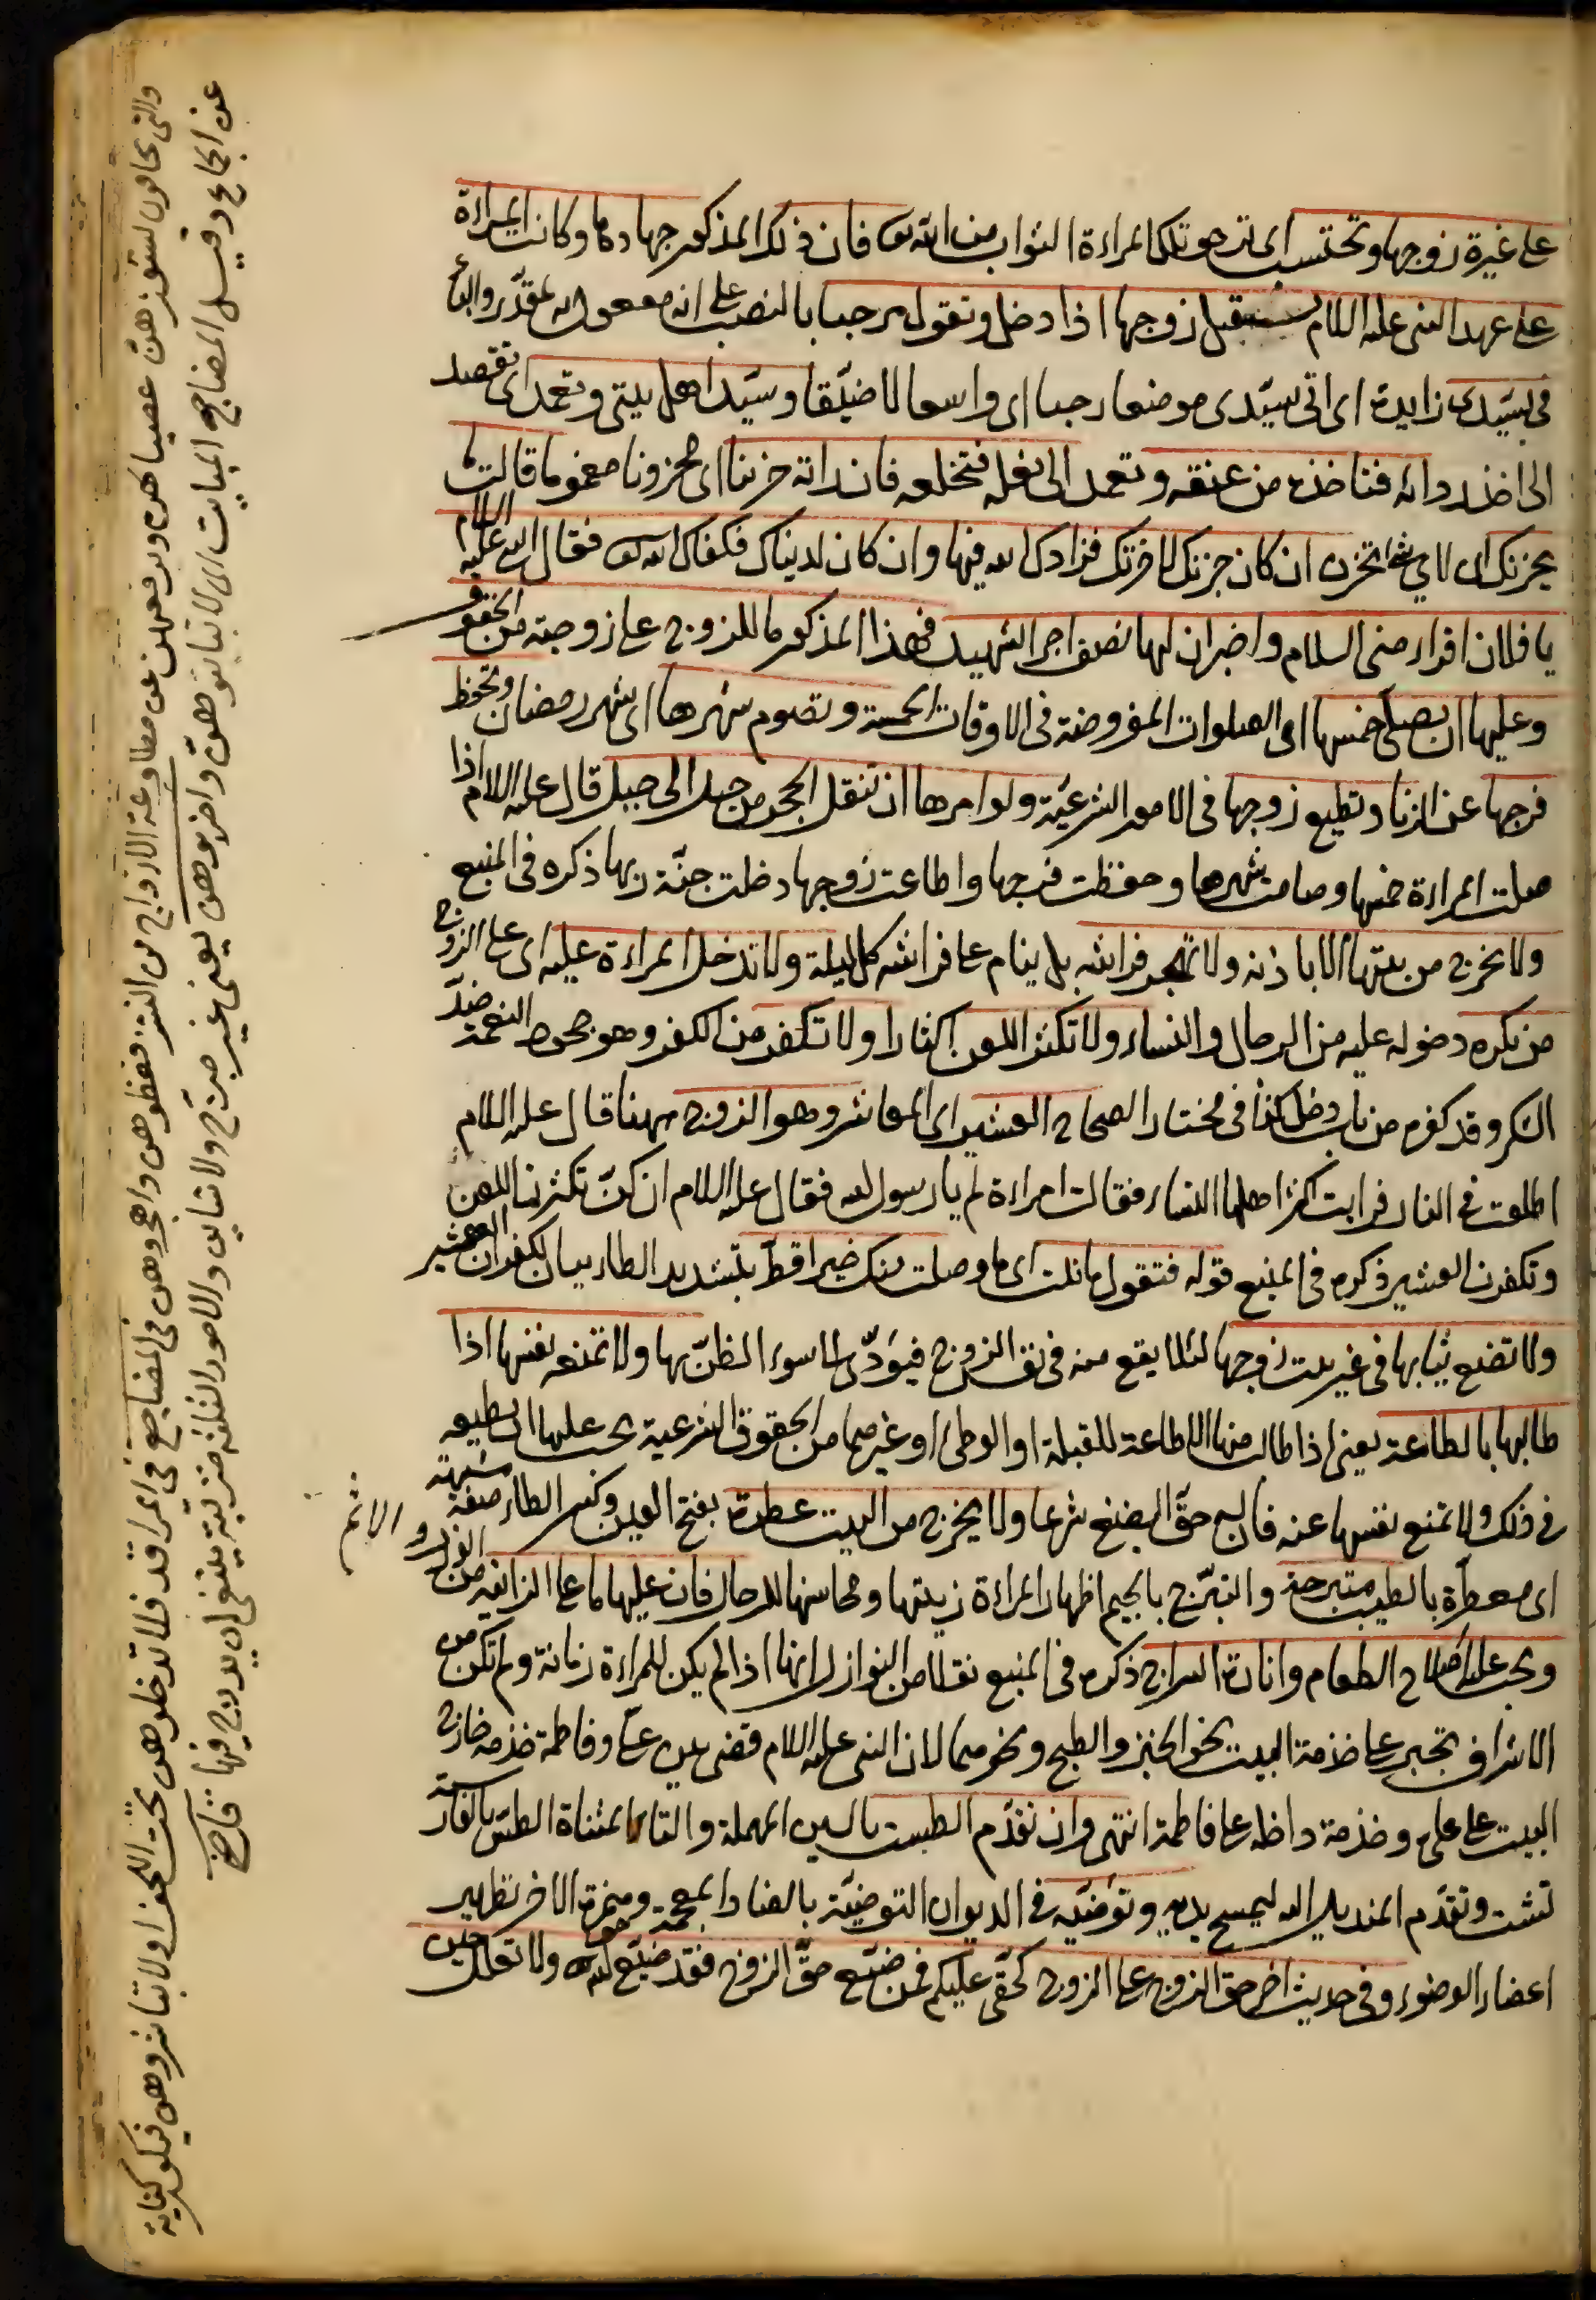 على غيرة زوجها وتحتسب اى ترجو تلك المراءة الثواب من الله تعا فان ذلك المذكور جهادها وكانت المراءة
على عهد النبى عليه السلام تستقبل زوجها اذا دخل وتقول مرحبا بالنصب على انه مفعول به لمقدر والباء
فى بسيدى زايدة اى اتى سيدى موضعا رحبا اى واسعا لا ضيقا وسيد اهل بيتى وتعمد اى تقصد
الى اخذ ردائه فتاخذه من عنقه وتعمد الى نعله فتخلعه فان راته حزينا اى محزونا مغموما قالت ما
يحزنك اى لاى شئ تحزن ان كان حزنك لاخرتك فزادك الله فيها وان كان لدنياك فكفاك الله تعا فقال النبى عليه السلام
يا فلان اقراء منى السلام واخبر ان لها نصف اجر الشهيد فهذا المذكور ما للزوج على زوجته من الحقوق
وعليها ان تصلى خمسها اى الصلوات المفروضة فى الاوقات الخمسة وتصوم شهرها اى شهر رمضان وتحفظ
فرجها عن الزنا وتطيع زوجها فى الامور الشرعية ولو امرها ان تنقل الحجر من جبل الى جبل قال عليه السلام اذا
صلت المراءة خمسها وصامت شهرها وحفظت فرجها واطاعت زوجها دخلت جنة ربها ذكره فى المنبع
ولا تخرج من بيتها الا باذنه ولا تهجر فراشه بل ينام على فراشه كل ليلة ولا تدخل المراءة عليه اى على الزوج
من يكره دخوله عليه من الرجال والنساء ولا تكثر اللعن اكثارا ولا تكفر من الكفر وهو جحود النعمة ضد
الشكر وقد كفره من باب دخل كذا فى مختار الصحاح العشير اى المعاشر وهو الزوج ههنا قال عليه السلام
اطلعت فى النار فرايت اكثر اهلها النساء فقالت امراءة لم يا رسول الله فقال عليه السلام انكن تكثرن اللعن
وتكفرن العشير ذكره فى المنبع قوله فتقول ما نلت اى ما وصلت منك خيرا قط بتشديد الطاء بيان لكفران العشير
ولا تضع ثيابها فى غير بيت زوجها لئلا يقع منه فى نفس الزوج فيؤدى الى سوء الظن بها ولا تمنعه نفسها اذا
طالبها بالطاعة يعنى اذا طالب منها الاطاعة للقبلة او الوطئ او غيرهما من الحقوق الشرعية يجب عليها ان تطيعه
فى ذلك ولا تمنع نفسها عنه فان له حق البضع شرعا ولا يخرج من البيت عطرة بفتح العين وكسر الطاء صفة مشبهة
اى معطرة بالطيب متبرجة والتبرج بالجيم اظهار المراءة زينتها ومحاسنها للرجال فان عليها ما على الزانية من الوزر و الاثم
ويجب عليها اصلاح الطعام وانارة السراج ذكره فى المنبع نقلا من النوازل انها اذا لم يكن للمراءة زمانة ولم تكن من
الاشراف تجبر على خدمة البيت نحو الخبز والطبخ ونحوهما لان النبى عليه السلام قضى بين على وفاطمة خدمة خارج
البيت على على وخدمة داخله على فاطمة انتهى وان تقدم الطست بالسين المهملة والتاء المثناة الطس بالفارسية
تشت وتقدم المنديل اليه ليمسح يده وتوضيه فى الديوان التوضية بالضاد المعجمة وهمزة الاخر تطهير
اعضاء الوضوء وفى حديث اخر حق الزوج على الزوج كحقى عليكم فمن ضيع حق الزوج فقد ضيع حق الله ولا تعلل حين
والتى تخافون نشوزهن عصيانهن وترفعهن عن مطاوعة الازواج من النشز فعظوهن واهجروهن فى المضاجع فى المراقد فلا تدخلوهن تحت اللحف اولا تباشروهن فيكون كناية
عن الجماع وقيل المضاجع المبايت اى لا تبايتوهن واضربوهن يعنى غير مبرح ولا شاين والامور الثلثة مترتبة ينبغى ان يدرج فيها قاضى